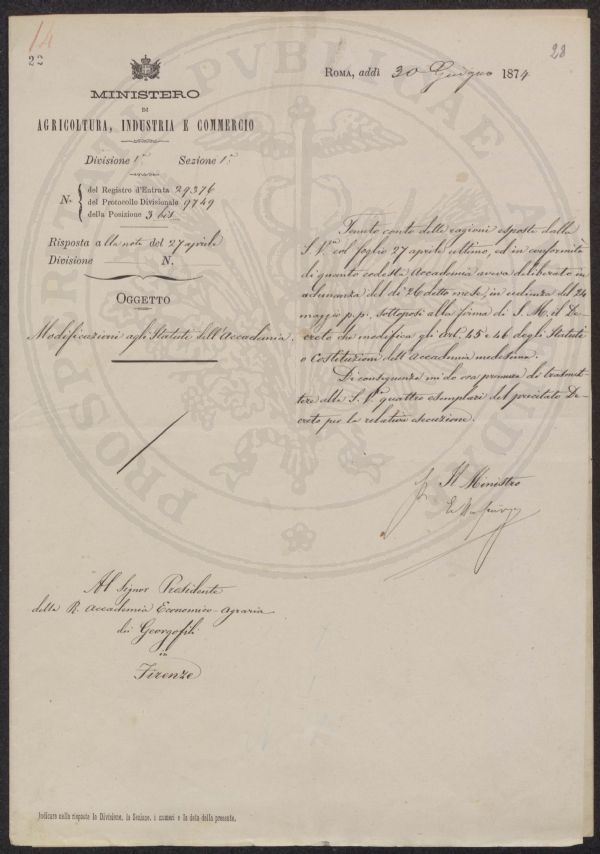 14
22
28
Roma, addì 30 Giugno 1874
MINISTERO
DI
AGRICOLTURA, INDUSTRIA E COMMERCIO
Divisione 1ª Sezione 1ª
N.
del Registro d'Entrata 29376
del Protocollo Divisionale 9749
della Posizione 3 bis
Risposta alla nota del 27 aprile
Divisione N.
OGGETTO
Modificazioni agli Statuti dell'Accademia.
Tenuto conto delle ragioni esposte dalla
S. V. col foglio 27 aprile ultimo, ed in conformità
di quanto codesta Accademia aveva deliberato in
adunanza del dì 26 detto mese, in udienza del 24
maggio p. p. sottoposi alla firma di S. M. il De-
creto che modifica gli Art. 45 e 46 degli Statuti
o Costituzioni dell'Accademia medesima.
Di conseguenza mi do ora premura di trasmet-
tere alla S. V. quattro esemplari del precitato De-
creto per la relativa esecuzione.
Il Ministro
Al Signor Presidente
della R. Accademia Economico-Agraria
dei Georgofili
in
Firenze
Indicare nella risposta la Divisione, la Sezione, i numeri e la data della presente.
PROSPERITATI PVBLICAE